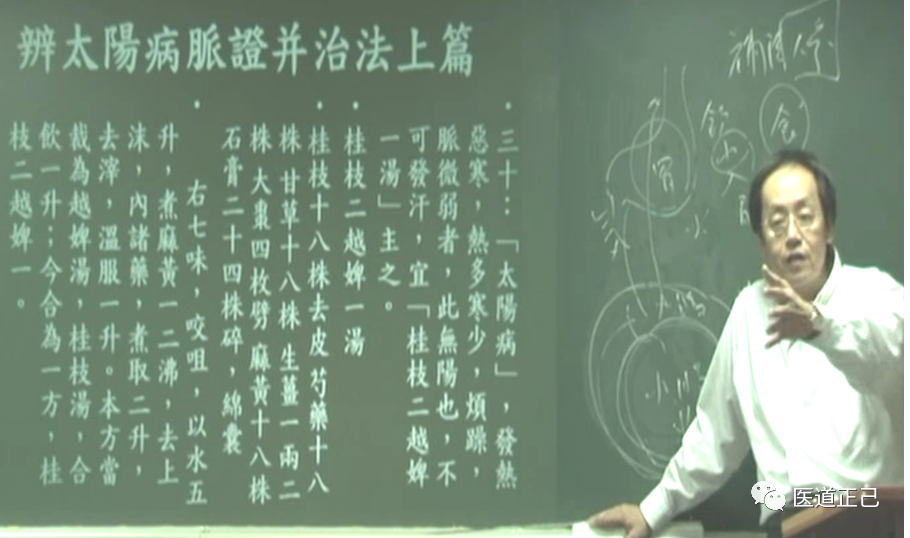 辨太陽病脈證并治法上篇
・三十：「太陽病」，發熱
惡寒，熱多寒少，煩躁，
脈微弱者，此無陽也，不
可發汗，宜「桂枝二越婢
一湯」主之。
・桂枝二越婢一湯
・桂枝十八株去皮 芍藥十八
株 甘草十八株 生薑一兩二
株 大棗四枚劈 麻黃十八株
石膏二十四株碎，綿囊
・右七味，咬咀，以水五
升，煮麻黃一二沸，去上
沫，內諸藥，煮取二升，
去滓，溫服一升。本方當
裁為越婢湯，桂枝湯，合
飲一升；今合為一方，桂
枝二越婢一。
胃
医道正己